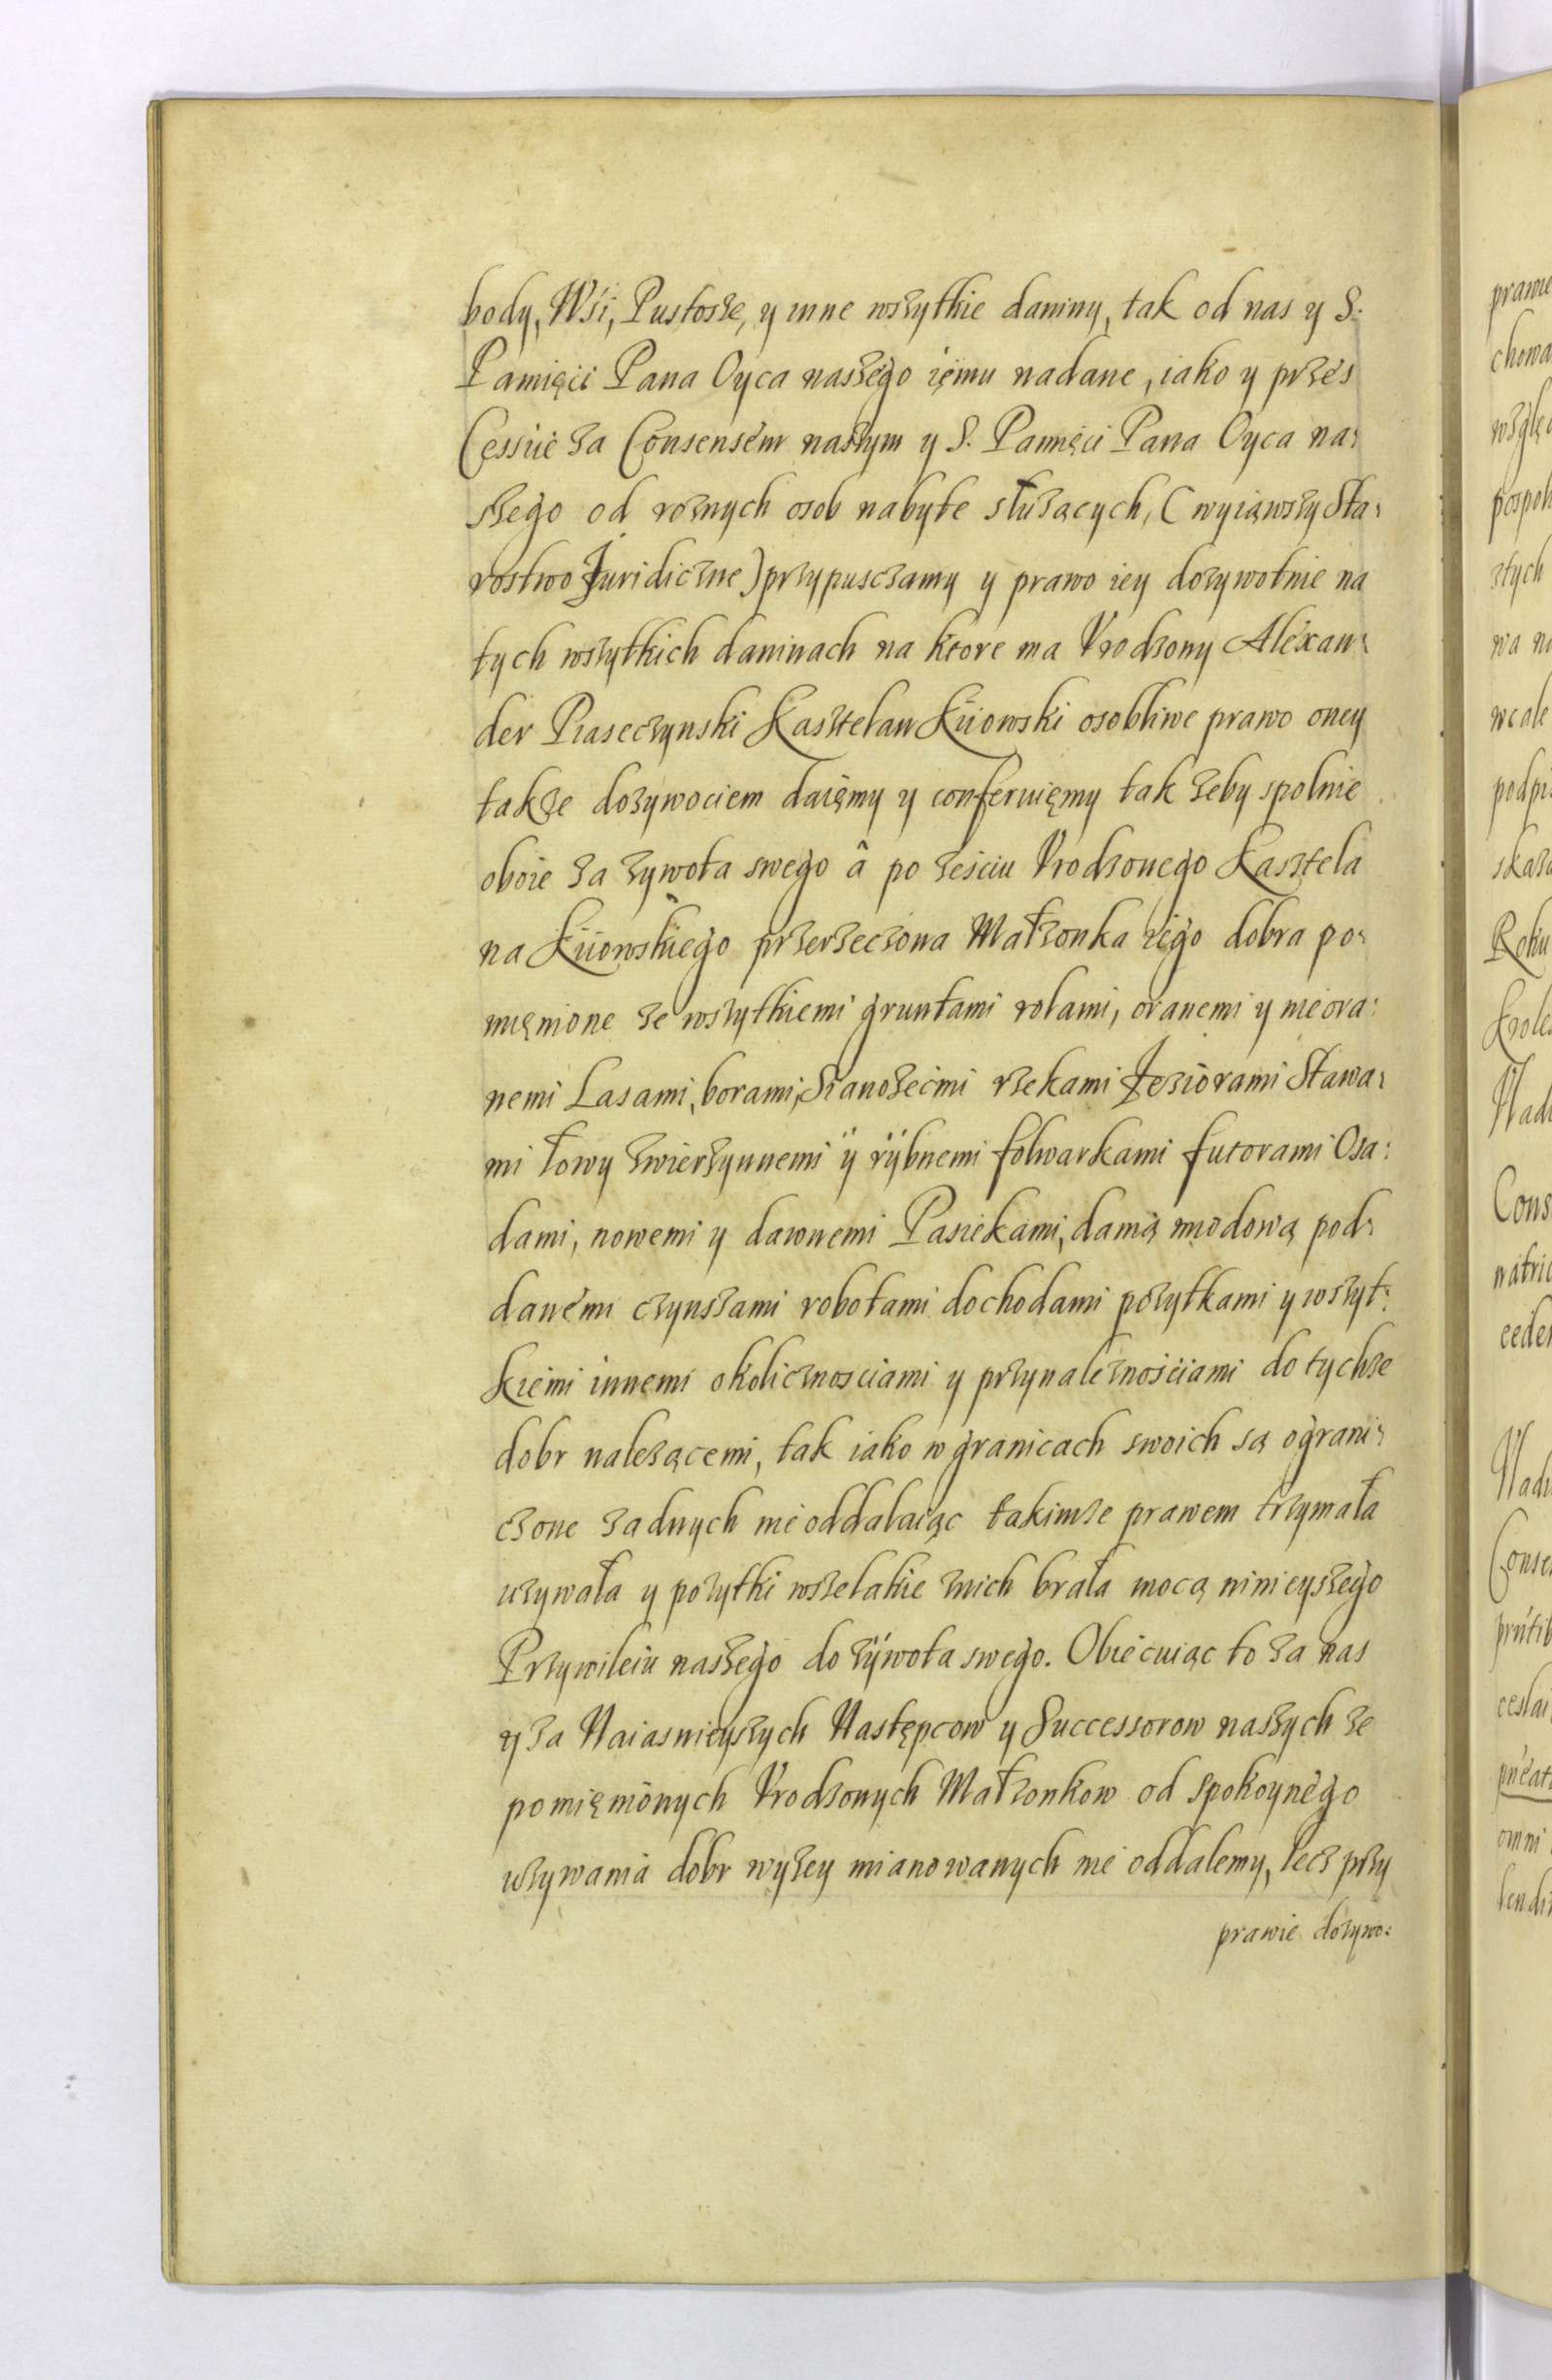 body, Wśi, Pustosze, y inne wszytkie daniny, tak od nas y S.
Pamięci Pana Oyca naszego iemu nadane, iako y przes
Cessiie za Consensem naszym y S. Pamięci Pana Oyca na:
szego od roznych osob nabyte słuzących, (wyiąwszy Sta:
rostwo Juridiczne) przypusczamy y prawo iey dozywotnie na
tych wszytkich daninach na ktore ma Vrodzony Alexan:
der Piaseczynski Kasztelan Kiiowski osobliwe prawo oney
takze dozywociem daięmy y conferuięmy tak zeby spolnie
oboie za zywota swego â po ześciu Vrodzonego Kasztela
na Kiiowskiego przerzeczona Małzonka iego dobra po:
mięnione ze wszytkiemi gruntami rolami, oranemi y nieora:
nemi Lasami, borami, Sianozećmi rzekami Jeziorami Stawa:
mi łowy zwierzynnemi ÿ rÿbnemi folwarkami futorami Osa:
dami, nowemi y dawnemi Pasiekami, danią miodową pod:
danemi czynszami robotami dochodami pozytkami y wszyt:
kiemi innemi okolicznosciami y przynaleznościami do tychze
dobr nalezącemi, tak iako w granicach swoich są ograni:
czone zadnych nie oddalaiąc takimze prawem trzymała
uzywała y pozytki wszelakie znich brała mocą ninieyszego
Przywileiu naszego do zÿwota swego. Obiecuiąc to za nas
y za Naiasnieyszych Następcow y Successorow naszych ze
pomięnionych Vrodzonych Małzonkow od spokoynego
uzywania dobr wyzey mianowanych nie oddalemy, lecz przy
prawie dozywo:
prawie
chowa
wzglę
pospol
ztych
wa na
wcale
podpi
skaza
Roku
Krole
Wład
Cons
natric
ceder
Wład
Conse
ceslai
omni